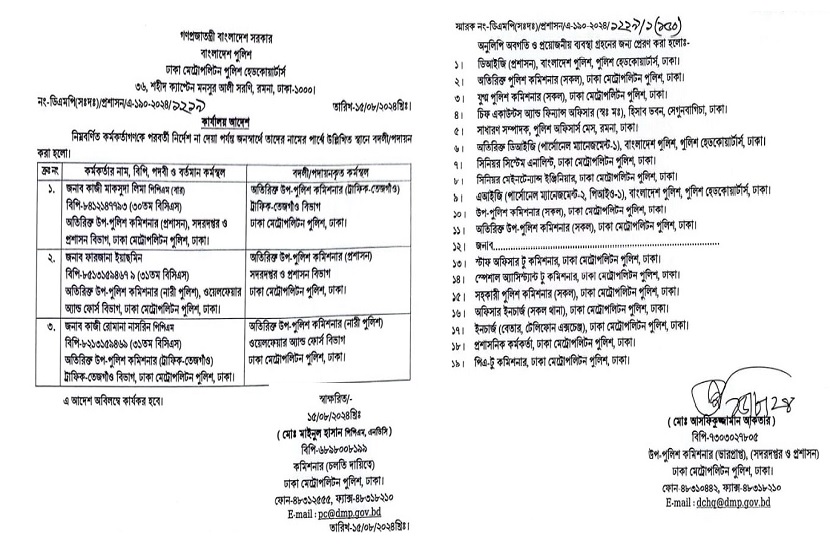 গণপ্রজাতন্ত্রী বাংলাদেশ সরকার
বাংলাদেশ পুলিশ
ঢাকা মেট্রোপলিটন পুলিশ হেডকোয়ার্টার্স
৩৬, শহীদ ক্যাপ্টেন মনসুর আলী সরণি, রমনা, ঢাকা-১০০০।
নং-ডিএমপি(সঃদঃ)/প্রশাসন/এ-১৯০-২০২৪/২২২৯
তারিখ-১৫/০৮/২০২৪খ্রিঃ।
কার্যালয় আদেশ
নিম্নবর্ণিত কর্মকর্তাগণকে পরবর্তী নির্দেশ না দেয়া পর্যন্ত জনস্বার্থে তাদের নামের পার্শ্বে উল্লিখিত স্থানে বদলী/পদায়ন
করা হলো।
ক্রঃ নং
কর্মকর্তার নাম, বিপি, পদবী ও বর্তমান কর্মস্থল
বদলী/পদায়নকৃত কর্মস্থল
১.
জনাব কাজী মাকসুদা লিমা পিপিএম (বার)
বিপি-৮৪১২১৪৭৭৯৩ (৩০তম বিসিএস)
অতিরিক্ত উপ-পুলিশ কমিশনার (প্রশাসন), সদরদপ্তর ও
প্রশাসন বিভাগ, ঢাকা মেট্রোপলিটন পুলিশ, ঢাকা।
অতিরিক্ত উপ-পুলিশ কমিশনার (ট্রাফিক-তেজগাঁও)
ট্রাফিক-তেজগাঁও বিভাগ
ঢাকা মেট্রোপলিটন পুলিশ, ঢাকা।
২.
জনাব ফারজানা ইয়াছমিন
বিপি-৮৫১৩১৫৯৪৬৭ ৯ (৩১তম বিসিএস)
অতিরিক্ত উপ-পুলিশ কমিশনার (নারী পুলিশ), ওয়েলফেয়ার
অ্যান্ড ফোর্স বিভাগ, ঢাকা মেট্রোপলিটন পুলিশ, ঢাকা।
অতিরিক্ত উপ-পুলিশ কমিশনার (প্রশাসন)
সদরদপ্তর ও প্রশাসন বিভাগ
ঢাকা মেট্রোপলিটন পুলিশ, ঢাকা।
৩.
জনাব কাজী রোমানা নাসরিন পিপিএম
বিপি-৮২১৩১৫৯৪৬৯ (৩১তম বিসিএস)
অতিরিক্ত উপ-পুলিশ কমিশনার (ট্রাফিক-তেজগাঁও)
ট্রাফিক-তেজগাঁও বিভাগ, ঢাকা মেট্রোপলিটন পুলিশ, ঢাকা।
অতিরিক্ত উপ-পুলিশ কমিশনার (নারী পুলিশ)
ওয়েলফেয়ার অ্যান্ড ফোর্স বিভাগ
ঢাকা মেট্রোপলিটন পুলিশ, ঢাকা।
এ আদেশ অবিলম্বে কার্যকর হবে।
স্বাক্ষরিত/-
১৫/০৮/২০২৪খ্রিঃ
( মোঃ মাইনুল হাসান পিপিএম, এনডিসি)
বিপি-৬৮৯৮০০৮১৯৯
কমিশনার (চলতি দায়িত্বে)
ঢাকা মেট্রোপলিটন পুলিশ, ঢাকা।
ফোন-৪৮৩১২৫৫৫, ফ্যাক্স-৪৮৩১৮২১০
E-mail : pc@dmp.gov.bd
তারিখ-১৫/০৮/২০২৪খ্রিঃ।
স্মারক নং-ডিএমপি(সঃদঃ)/প্রশাসন/এ-১৯০-২০২৪/২২২৯/১(৪০০)
অনুলিপি অবগতি ও প্রয়োজনীয় ব্যবস্থা গ্রহনের জন্য প্রেরণ করা হলোঃ-
১। ডিআইজি (প্রশাসন), বাংলাদেশ পুলিশ, পুলিশ হেডকোয়ার্টার্স, ঢাকা।
২। অতিরিক্ত পুলিশ কমিশনার (সকল), ঢাকা মেট্রোপলিটন পুলিশ, ঢাকা।
৩। যুগ্ম পুলিশ কমিশনার (সকল), ঢাকা মেট্রোপলিটন পুলিশ, ঢাকা।
৪। চিফ একাউন্টস অ্যান্ড ফিন্যান্স অফিসার (স্বঃ মঃ), হিসাব ভবন, সেগুনবাগিচা, ঢাকা।
৫। সাধারণ সম্পাদক, পুলিশ অফিসার্স মেস, রমনা, ঢাকা।
৬। অতিরিক্ত ডিআইজি (পার্সোনেল ম্যানেজমেন্ট-১), বাংলাদেশ পুলিশ, পুলিশ হেডকোয়ার্টার্স, ঢাকা।
৭। সিনিয়র সিস্টেম এনালিস্ট, ঢাকা মেট্রোপলিটন পুলিশ, ঢাকা।
৮। সিনিয়র মেইনটেন্যান্স ইঞ্জিনিয়ার, ঢাকা মেট্রোপলিটন পুলিশ, ঢাকা।
৯। এআইজি (পার্সোনেল ম্যানেজমেন্ট-২, পিআইও-১), বাংলাদেশ পুলিশ, পুলিশ হেডকোয়ার্টার্স, ঢাকা।
১০। উপ-পুলিশ কমিশনার (সকল), ঢাকা মেট্রোপলিটন পুলিশ, ঢাকা।
১১। অতিরিক্ত উপ-পুলিশ কমিশনার (সকল), ঢাকা মেট্রোপলিটন পুলিশ, ঢাকা।
১২। জনাব............................................................
১৩। স্টাফ অফিসার টু কমিশনার, ঢাকা মেট্রোপলিটন পুলিশ, ঢাকা।
১৪। স্পেশাল অ্যাসিস্ট্যান্ট টু কমিশনার, ঢাকা মেট্রোপলিটন পুলিশ, ঢাকা।
১৫। সহকারী পুলিশ কমিশনার (সকল), ঢাকা মেট্রোপলিটন পুলিশ, ঢাকা।
১৬। অফিসার ইনচার্জ (সকল থানা), ঢাকা মেট্রোপলিটন পুলিশ, ঢাকা।
১৭। ইনচার্জ (বেতার, টেলিফোন এক্সচেঞ্জ), ঢাকা মেট্রোপলিটন পুলিশ, ঢাকা।
১৮। প্রশাসনিক কর্মকর্তা, ঢাকা মেট্রোপলিটন পুলিশ, ঢাকা।
১৯। পিএ-টু কমিশনার, ঢাকা মেট্রোপলিটন পুলিশ, ঢাকা।
( মোঃ আসফিকুজ্জামান আকতার)
বিপি-৭৩০৩০২৭৮০৫
উপ-পুলিশ কমিশনার (ভারপ্রাপ্ত), (সদরদপ্তর ও প্রশাসন)
ঢাকা মেট্রোপলিটন পুলিশ, ঢাকা।
ফোন-৪৮৩১০৪৪২, ফ্যাক্স-৪৮৩১৮২১০
E-mail : dchq@dmp.gov.bd